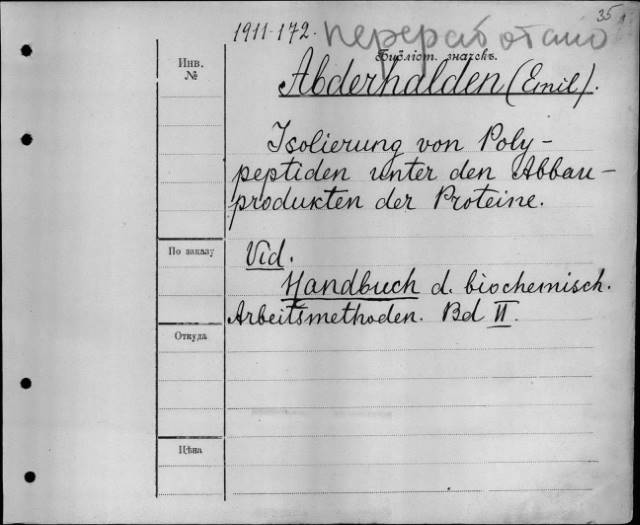 35
1911-172. переработано
Инв.
№
Библіот. значекъ.
Abderhalden (Emil).
Isolierung von Poly-
peptiden unter den Abbau-
produkten der Proteine.
По заказу
Vid.
Handbuch d. biochemisch.
Arbeitsmethoden. Bd II.
Откуда
Цѣна